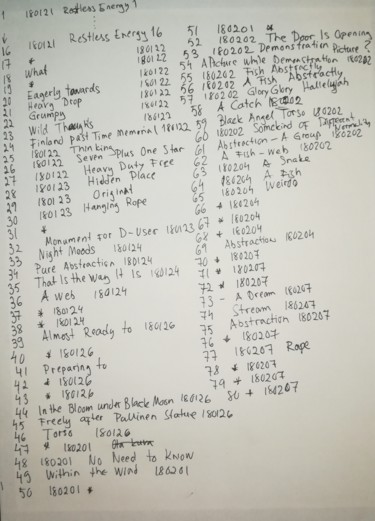 1 180121 Restless Energy 1
16 180121 Restless Energy 16
17 * 180122
18 What 180122
19 * 180122
20 Eagerly towards 180122
21 Heavy Drop 180122
Grumpy 180122
22 Wild Thanks
23 Finland Past Time Memorial 180122
24 180122 Thinking
25 180122 Seven-Plus One Star
26 180122 Heavy Duty Free
27 180123 Hidden Place
28 180123 Original
29 180123 Hanging Rope
30 *
31 Monument for D-User 180123
32 Night Moods 180124
33 Pure Abstraction 180124
34 That Is the Way It Is 180124
35 A Web 180124
36 * 180124
37 * 180124
38 Almost Ready to 180126
39
40 * 180126
41 Preparing to
42 * 180126
43 * 180126
44 In the Bloom under Black Moon 180126
45 Freely after Pallinen Statue 180126
46 Torso 180126
47 * 180201
48 180201 No Need to Know
49 Within the Wind 180201
50 180201 *
51 180201 *
52 180202 The Door Is Opening
53 180202 Demonstration Picture?
54 A Picture while Demonstration 180202
55 180202 Fish Abstractly
56 180202 A Fish Abstractly
57 180202 Glory Glory Hallelujah
58 A Catch 180202
59 Black Angel Torso 180202
60 180202 Somekind of Different
61 Abstraction - A Group 180202
62 A Fish-Web 180202
63 180204 A Snake
64 180204 A Fish
65 180204 Weirdo
66 * 180204
67 * 180204
68 * 180204
69 Abstraction 180204
70 * 180207
71 * 180207
72 * 180207
73 - A Dream 180207
74 Stream 180207
75 Abstraction 180207
76 * 180207
77 180207 Rope
78 * 180207
79 * 180207
80 * 180207